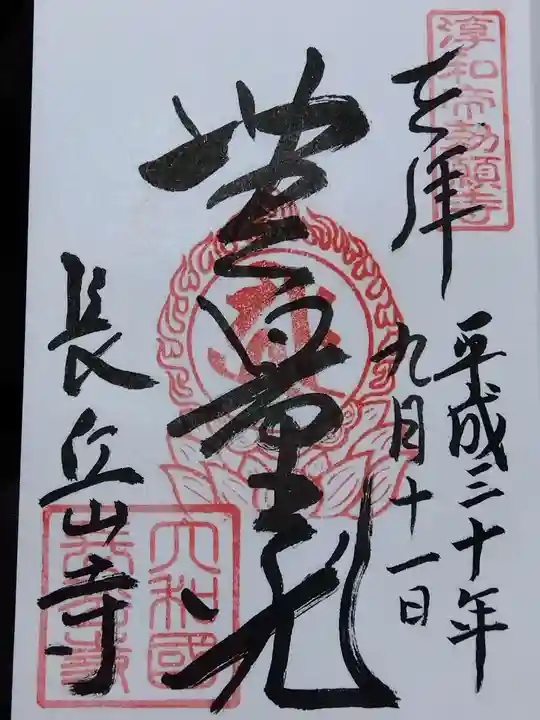 淳和帝勅願寺
奉拝
平成三十年
九月十一日
無量光
長岳寺
大和國
長岳寺